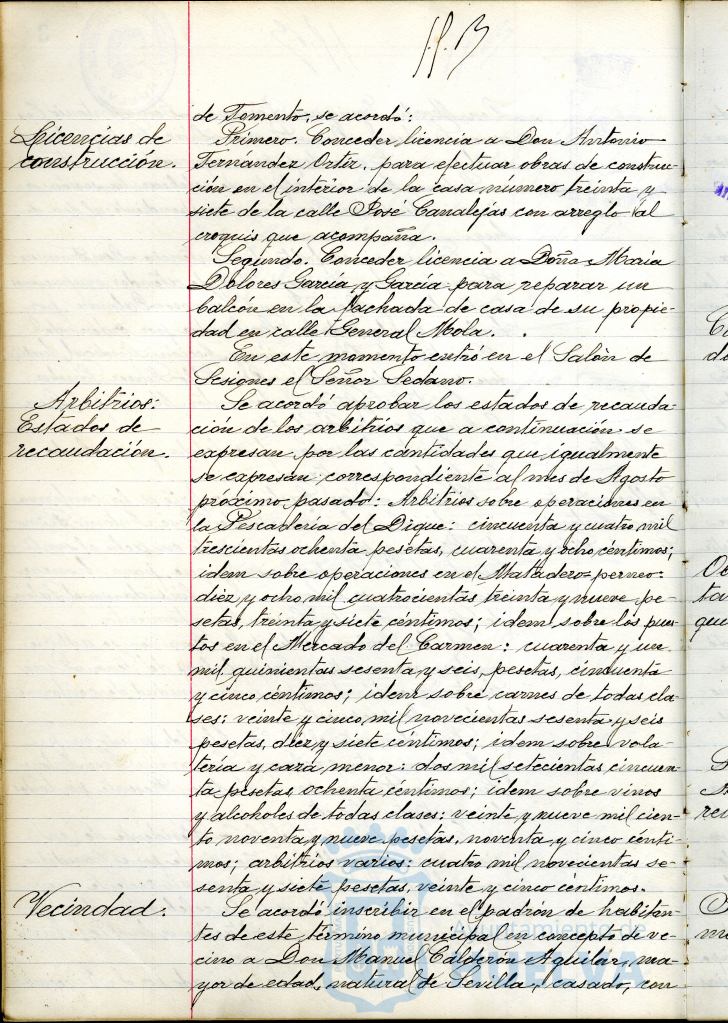 de Fomento, se acordó:
Licencias de
construcción.
Primero. Conceder licencia a Don Antonio
Fernández Ortiz, para efectuar obras de construc-
ción en el interior de la casa número treinta y
siete de la calle José Canalejas con arreglo al
croquis que acompaña.
Segundo. Conceder licencia a Doña María
Dolores García y García para reparar un
balcón en la fachada de casa de su propie-
dad en calle General Mola.
En este momento entró en el Salón de
Sesiones el Señor Sedano.
Arbitrios:
Estados de
recaudación.
Se acordó aprobar los estados de recauda-
ción de los arbitrios que a continuación se
expresan, por las cantidades que igualmente
se expresan, correspondiente al mes de Agosto
próximo pasado: Arbitrios sobre operaciones en
la Pescadería del Dique: cincuenta y cuatro mil
trescientas ochenta pesetas, cuarenta y ocho céntimos;
idem sobre operaciones en el Matadero=perneo:
diez y ocho mil cuatrocientas treinta y nueve pe-
setas, treinta y siete céntimos; idem sobre los pues-
tos en el Mercado del Carmen: cuarenta y un
mil quinientas sesenta y seis pesetas, cincuenta
y cinco céntimos; idem sobre carnes de todas cla-
ses: veinte y cinco mil novecientas sesenta y seis
pesetas, diez y siete céntimos; idem sobre vola-
tería y caza menor: dos mil setecientas cincuen-
ta pesetas ochenta céntimos; idem sobre vinos
y alcoholes de todas clases: veinte y nueve mil cien-
to noventa y nueve pesetas, noventa y cinco cénti-
mos; arbitrios varios: cuatro mil novecientas se-
senta y siete pesetas, veinte y cinco céntimos.
Vecindad:
Se acordó inscribir en el padrón de habitan-
tes de este término municipal en concepto de ve-
cino a Don Manuel Calderón Aguilar, ma-
yor de edad, natural de Sevilla, casado, con
Ayuntamiento de
HUELVA